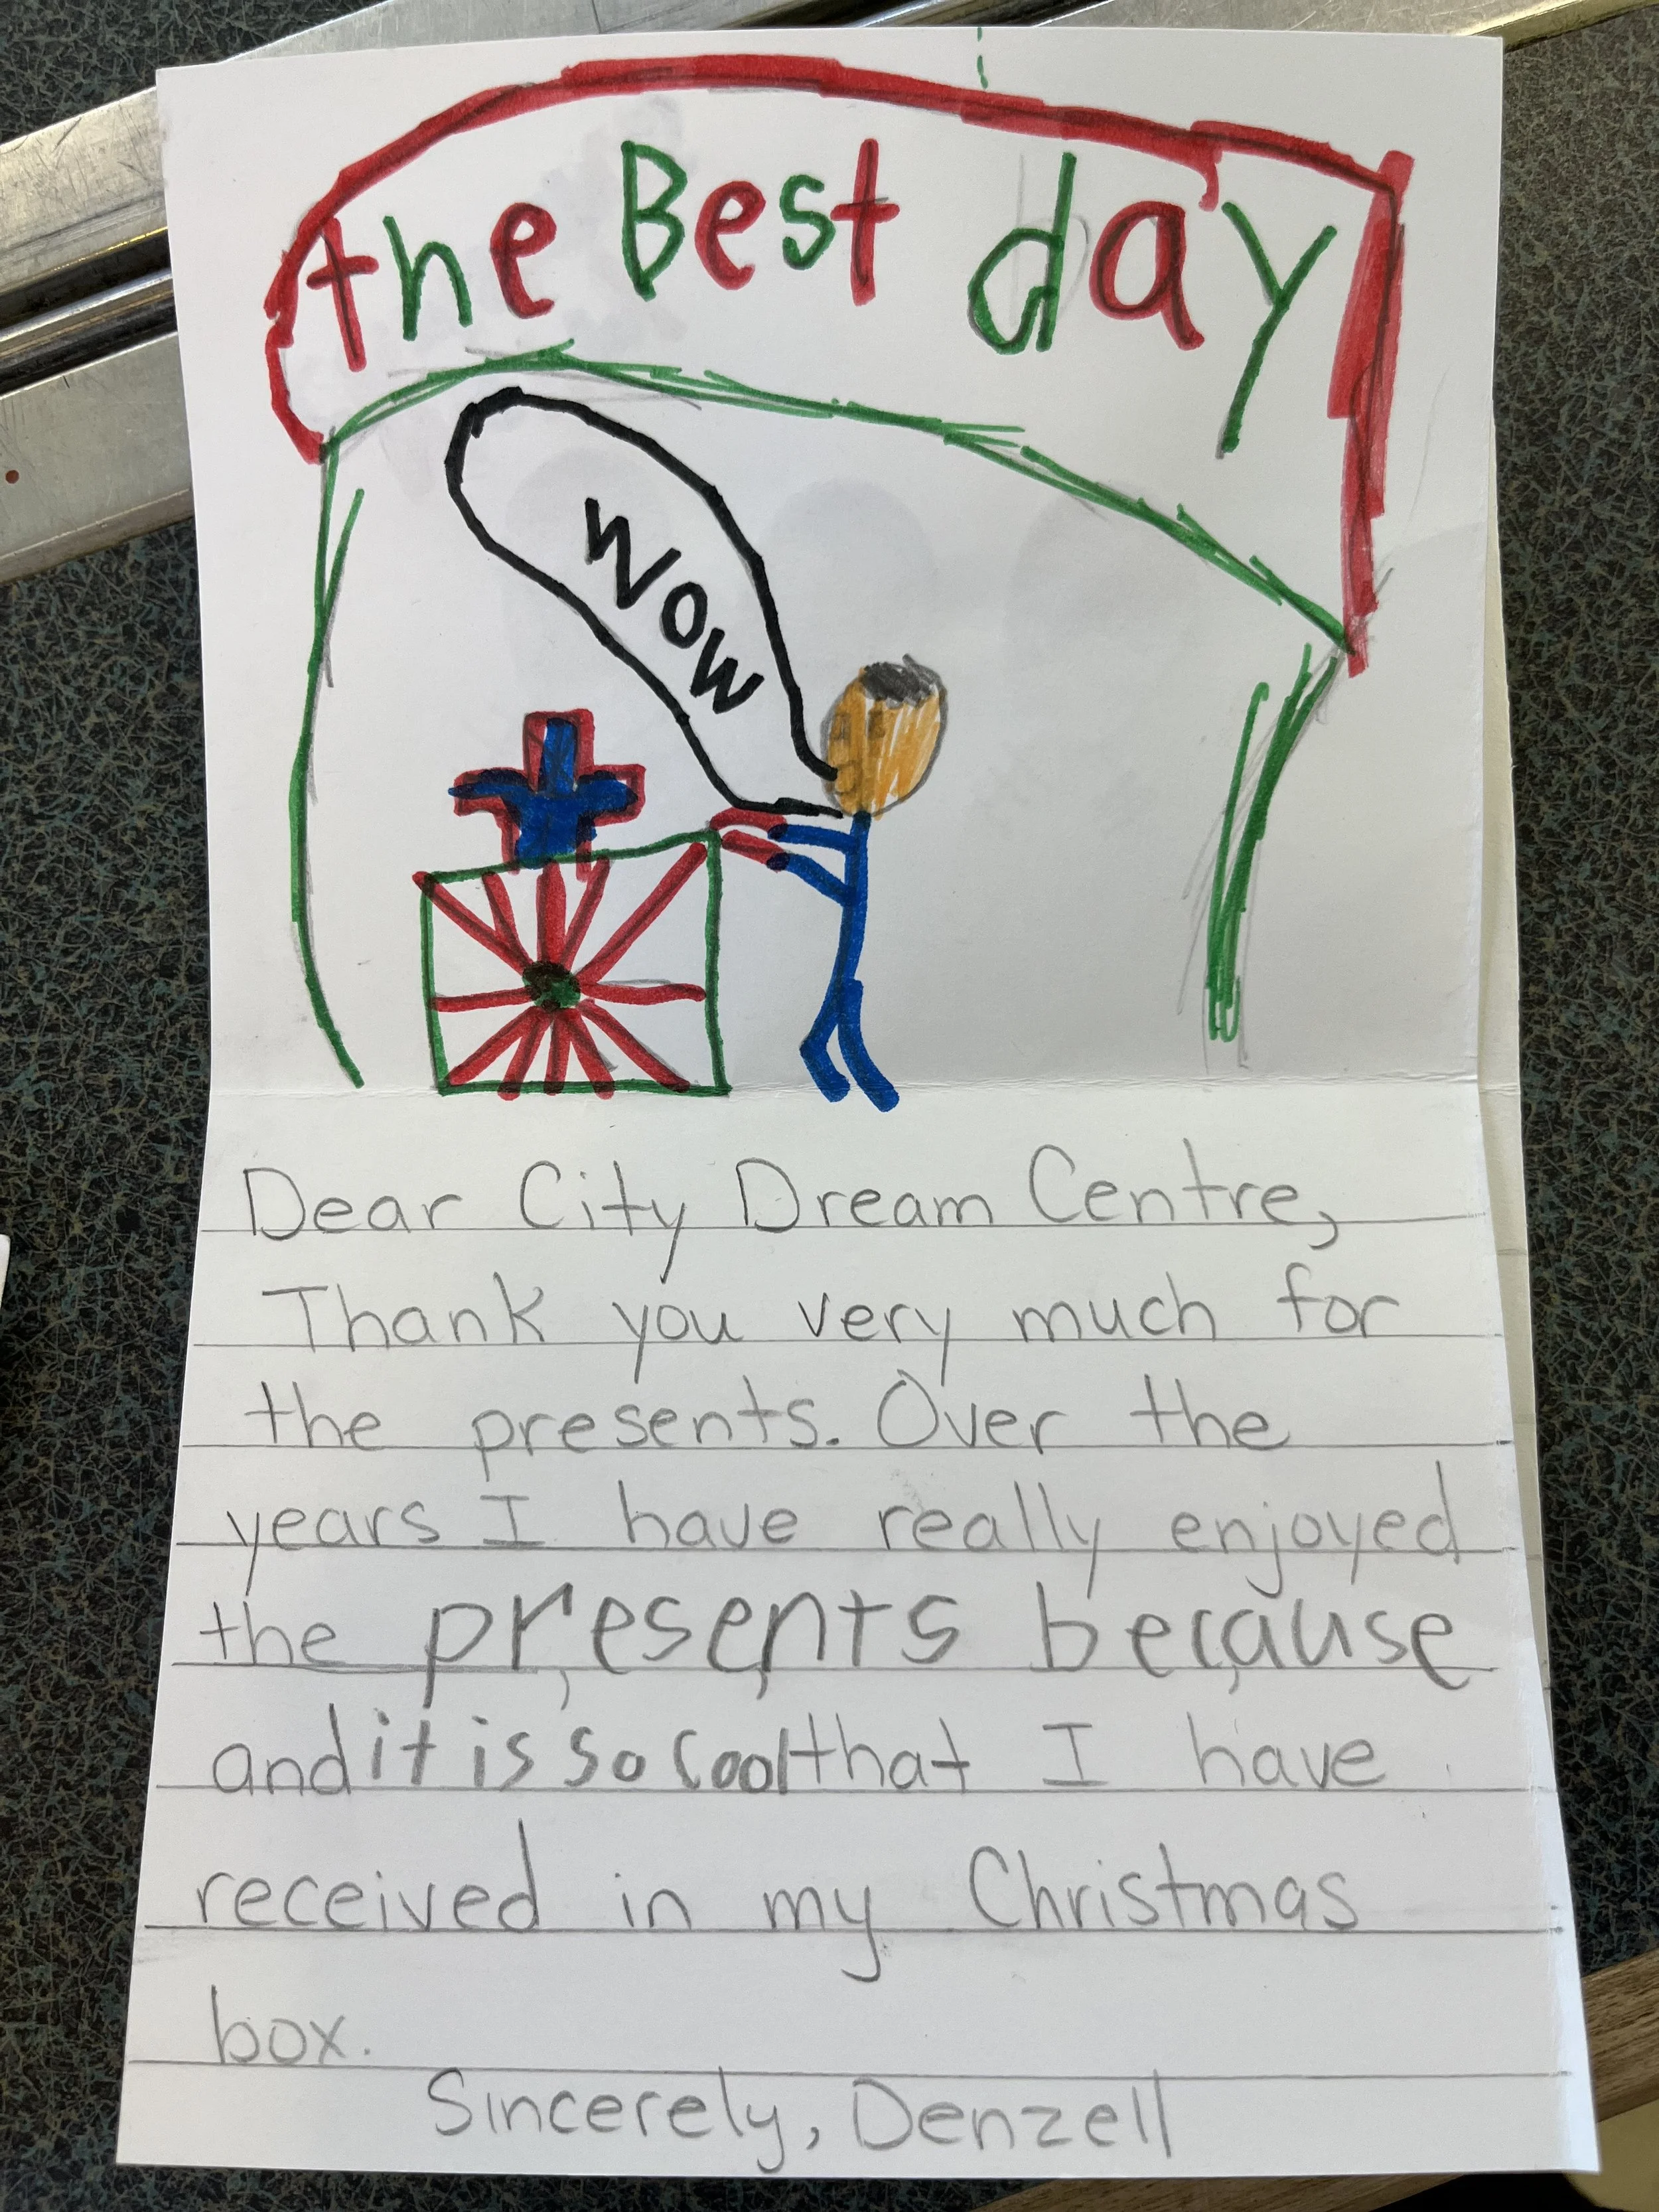 the Best day
WOW
Dear City Dream Centre,
Thank you very much for
the presents. Over the
years I have really enjoyed
the presents because
and it is so cool that I have
received in my Christmas
box.
Sincerely, Denzell